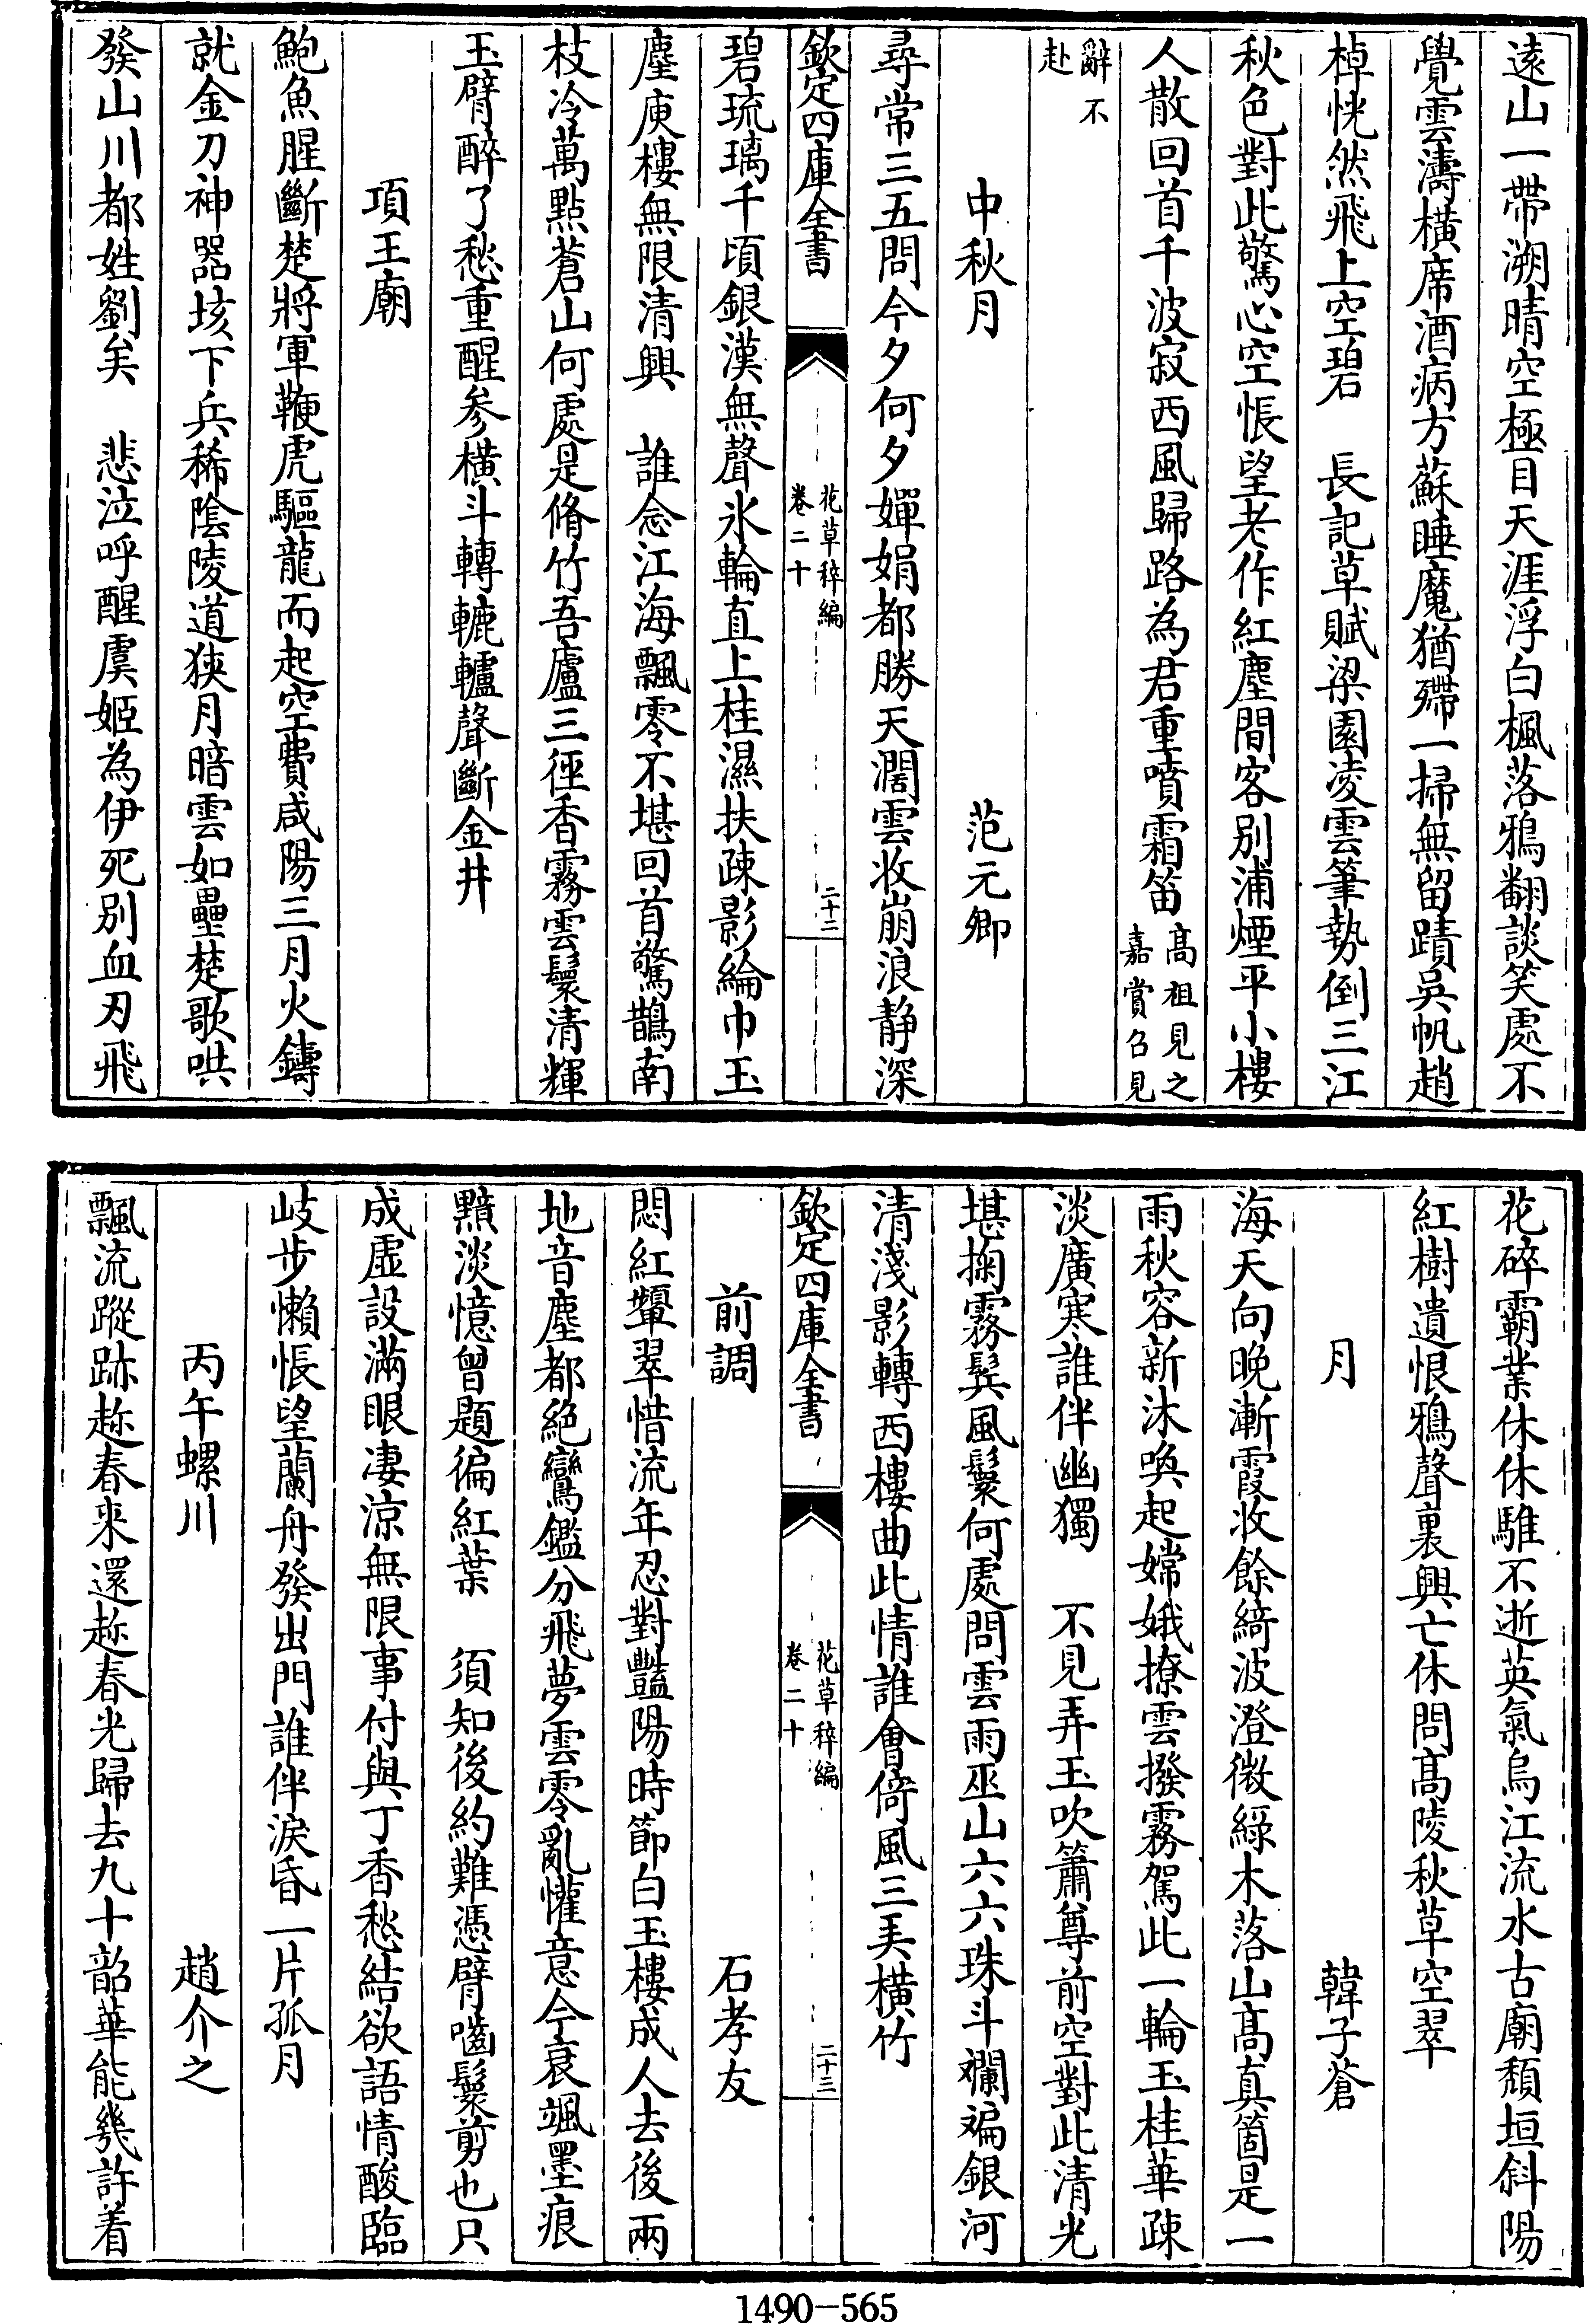 遠山一帶溯晴空極目天涯浮白楓落鴉翻談笑處不
覺雲濤橫席酒病方蘇睡魔猶殢一掃無留蹟吳帆趙
棹恍然飛上空碧　長記草賦梁園凌雲筆勢倒三江
秋色對此驚心空悵望老作紅塵間客別浦煙平小樓
人散回首千波寂西風歸路為君重噴霜笛高祖見之嘉賞召見
辭不赴
中秋月　范元卿
尋常三五問今夕何夕嬋娟都勝天濶雲收崩浪靜深
欽定四庫全書　花草稡編卷二十　二十二
碧琉璃千頃銀漢無聲氷輪直上桂濕扶疎影綸巾玉
麈庾樓無限清興　誰念江海飄零不堪回首驚鵲南
枝冷萬點蒼山何處是脩竹吾廬三徑香霧雲鬟清輝
玉臂醉了愁重醒參橫斗轉轆轤聲斷金井
項王廟
鮑魚腥斷楚將軍鞭虎驅龍而起空費咸陽三月火鑄
就金刀神器垓下兵稀陰陵道狹月暗雲如壘楚歌哄
發山川都姓劉矣　悲泣呼醒虞姬為伊死别血刃飛
花碎霸業休休騅不逝英氣烏江流水古廟頹垣斜陽
紅樹遺恨鴉聲裏興亡休問髙陵秋草空翠
月　韓子蒼
海天向晚漸霞收餘綺波澄微綠木落山髙真箇是一
雨秋容新沐喚起嫦娥撩雲撥霧駕此一輪玉桂華疎
淡廣寒誰伴幽獨　不見弄玉吹簫尊前空對此清光
堪掬霧鬂風鬟何處問雲雨巫山六六珠斗斕斒銀河
清淺影轉西樓曲此情誰會倚風三弄橫竹
欽定四庫全書　花草稡編卷二十　二十三
前調　石孝友
悶紅顰翠惜流年忍對豔陽時節白玉樓成人去後兩
地音塵都絶鸞鑑分飛夢雲零亂懽意今衰颯墨痕
黯淡憶曾題徧紅葉　須知後約難憑臂嚙鬟剪也只
成虛設滿眼凄涼無限事付與丁香愁結欲語情酸臨
岐步懶悵望蘭舟發出門誰伴淚昏一片孤月
丙午螺川　趙介之
飄流蹤跡趂春來還趂春光歸去九十韶華能幾許着
1490—565